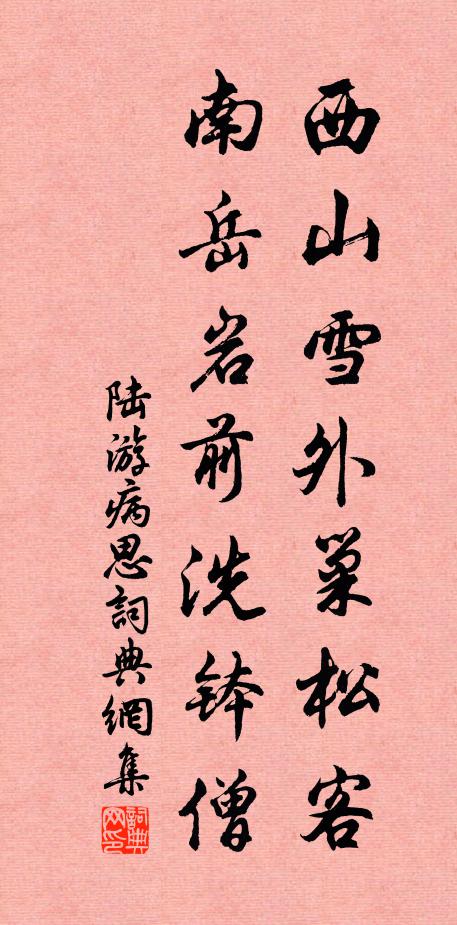 西山雪外巢松客
南岳岩前洗钵僧
陆游病思詞典網集
詞典网印